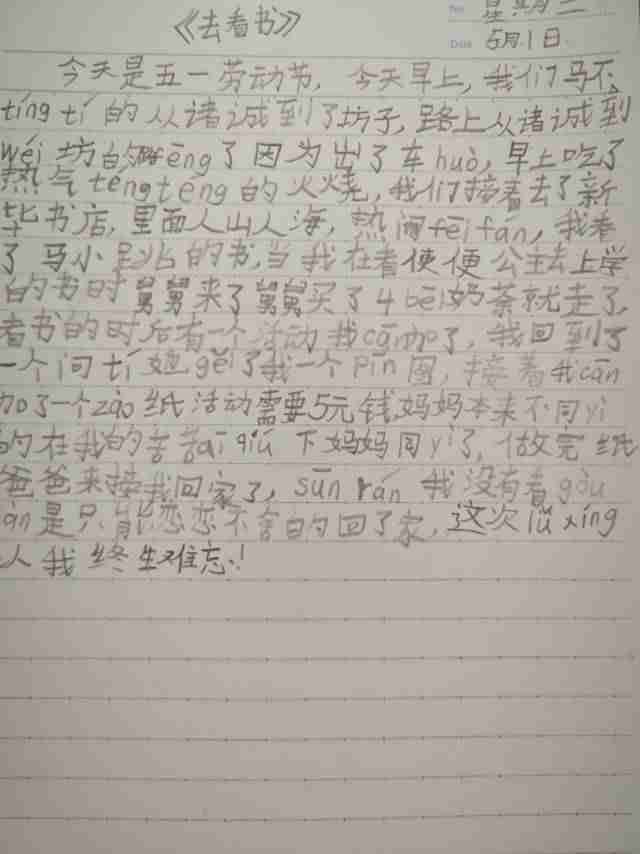 No 星期二
《去看书》
Date 5月1日
今天是五一劳动节, 今天早上, 我们马不
tíng tí 的从诸诚到了坊子, 路上从诸诚到
wéi 坊的 fēng了因为出了车huò, 早上吃了
热气 tēng tēng 的火烧, 我们接着去了新
华书店, 里面人山人海, 热闹fēi fán, 我看
了马小跳的书, 当我在看使便公主去上学
的书时舅舅来了舅舅买了4 bēi奶茶就走了,
看书的时后有一个活动我cān加了, 我回到了
一个问tí 她gěi了我一个 pīn 图, 接着我cān
加了一个zào纸活动需要5元钱,妈妈本来不同yì
的在我的苦苦āi qiú 下妈妈同yì了, 做完纸
爸爸来接我回家了, suīn rán 我没有看gòu
dàn是只能恋恋不舍的回了家, 这次lǚ xíng
人我终生难忘!